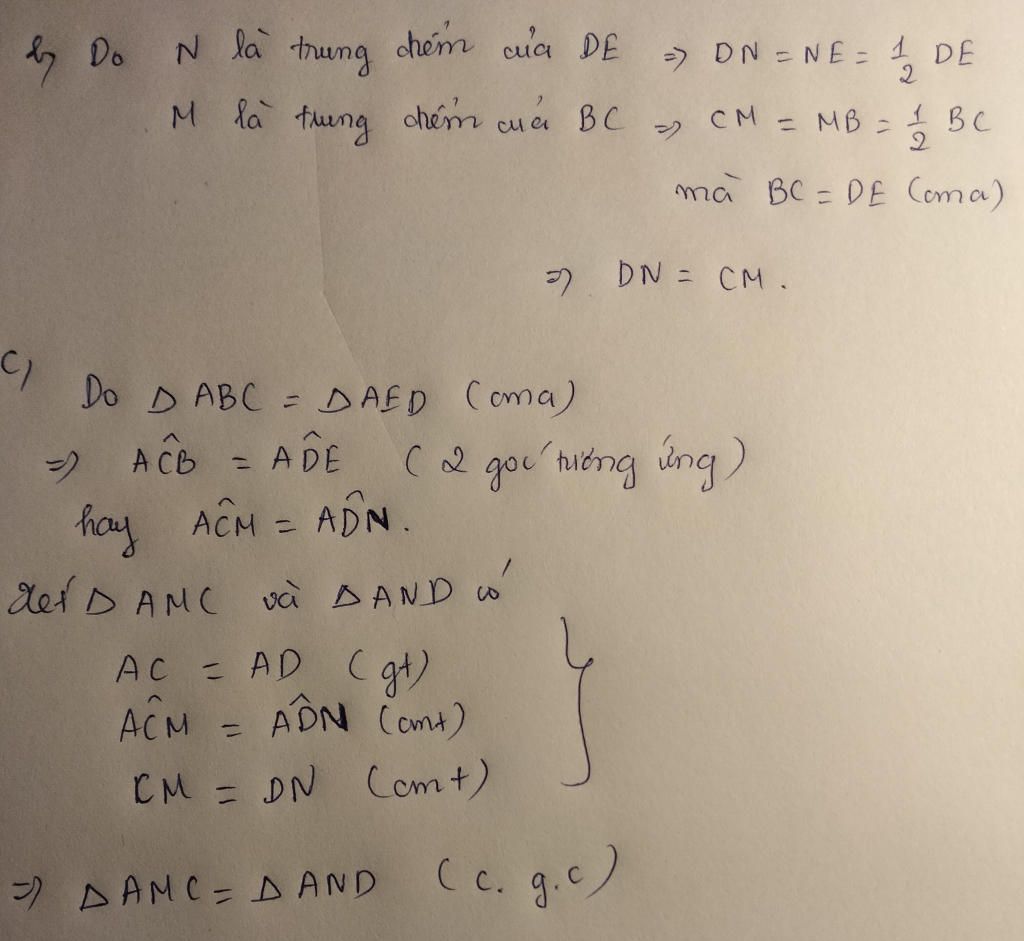 b, Do N là trung điểm của DE => DN = NE = 1/2 DE
M là trung điểm của BC => CM = MB = 1/2 BC
mà BC = DE (cma)
=> DN = CM.
c, Do Δ ABC = Δ AED (cma)
=> AĈB = AD̂E (2 góc tương ứng)
hay AĈM = AD̂N.
Xét Δ AMC và Δ AND có
AC = AD (gt)
AĈM = AD̂N (cmt)
CM = DN (cmt)
=> Δ AMC = Δ AND (c.g.c)